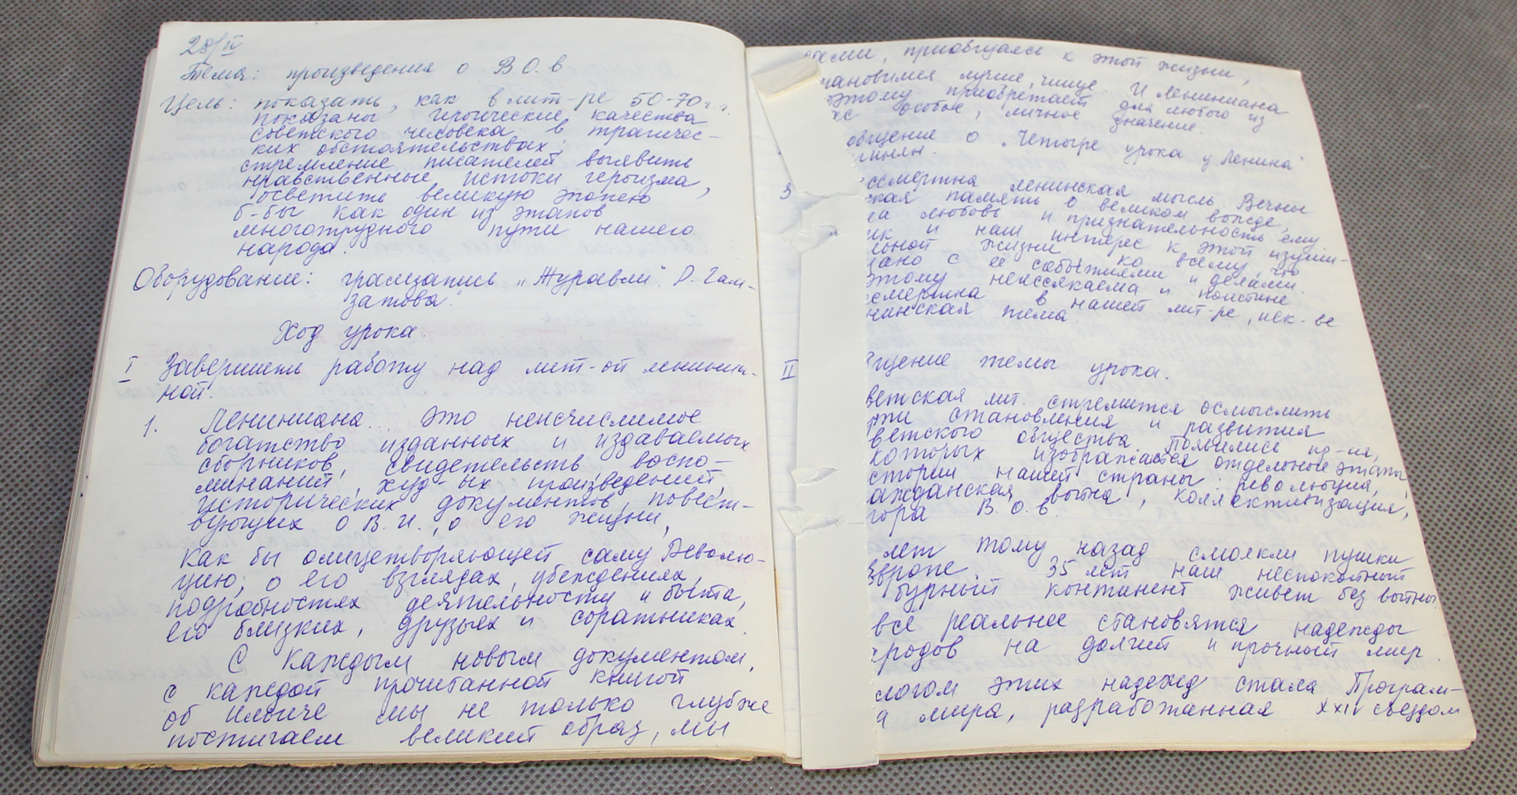 28/IV
Тема: произведения о В.О.в
Цель: показать, как в лит-ре 50-70 г.г.
показаны героические качества
советского человека в трагичес-
ких обстоятельствах;
стремление писателей выявить
нравственные истоки героизма,
осветить великую эпопею
б-бы как один из этапов
многотрудного пути нашего
народа.
Оборудование: грамзапись „Журавли". Р. Гам-
затова.
Ход урока.
I Завершаем работу над лит-ой лениниа-
ной.
1. Лениниана... это неисчислимое
богатство изданных и издаваемых
сборников, свидетельств, воспо-
минаний, худ-ых произведений,
исторических документов, повест-
вующих о В.И., о его жизни,
как бы олицетворяющей саму Револю-
цию; о его взглядах, убеждениях,
подробностях деятельности и быта,
его близких, друзьях и соратниках.
С каждым новым документом,
с каждой прочитанной книгой
об Ильиче мы не только глубже
постигаем великий образ, мы
ами, приобщаясь к этой жизни,
тановимся лучше, чище. И Лениниана
этому приобретает для любого из
ас особое, личное значение.
общение о „Четыре урока у Ленина"
гинян.
3 ессмертна ленинская мысль. Вечны
ская память о великом вожде,
ша любовь и признательность ему.
ик и наш интерес к этой изуми-
льной жизни ко всему, что
зано с её событиями и делами.
этому неиссякаема и поистине
смертна в нашей лит-ре, иск-ве
нинская тема.
II бщение темы урока.
ветская лит. стремится осмыслить
ути становления и развития
ветского общества. Появились пр-ия,
которых изображаются отдельные этапы
стории нашей страны: революция,
ажданская война, коллективизация,
гора В.О.в.
лет тому назад смолкли пушки
Европе. 35 лет наш неспокойный
бурный континент живёт без войны
всё реальнее становятся надежды
родов на долгий и прочный мир.
логом этих надежд стала Програм-
а мира, разработанная XXIV съездом